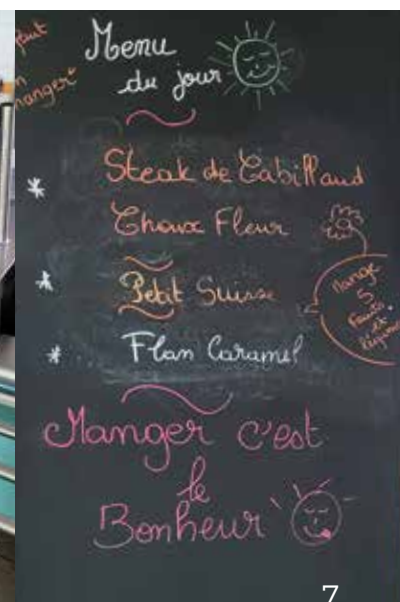 faut
manger"
Menu
du jour
Steak de Cabillaud
Choux Fleur
Petit Suisse
Flan Caramel
Mange
5
fruits
et
légumes
Manger c'est
le
Bonheur
7